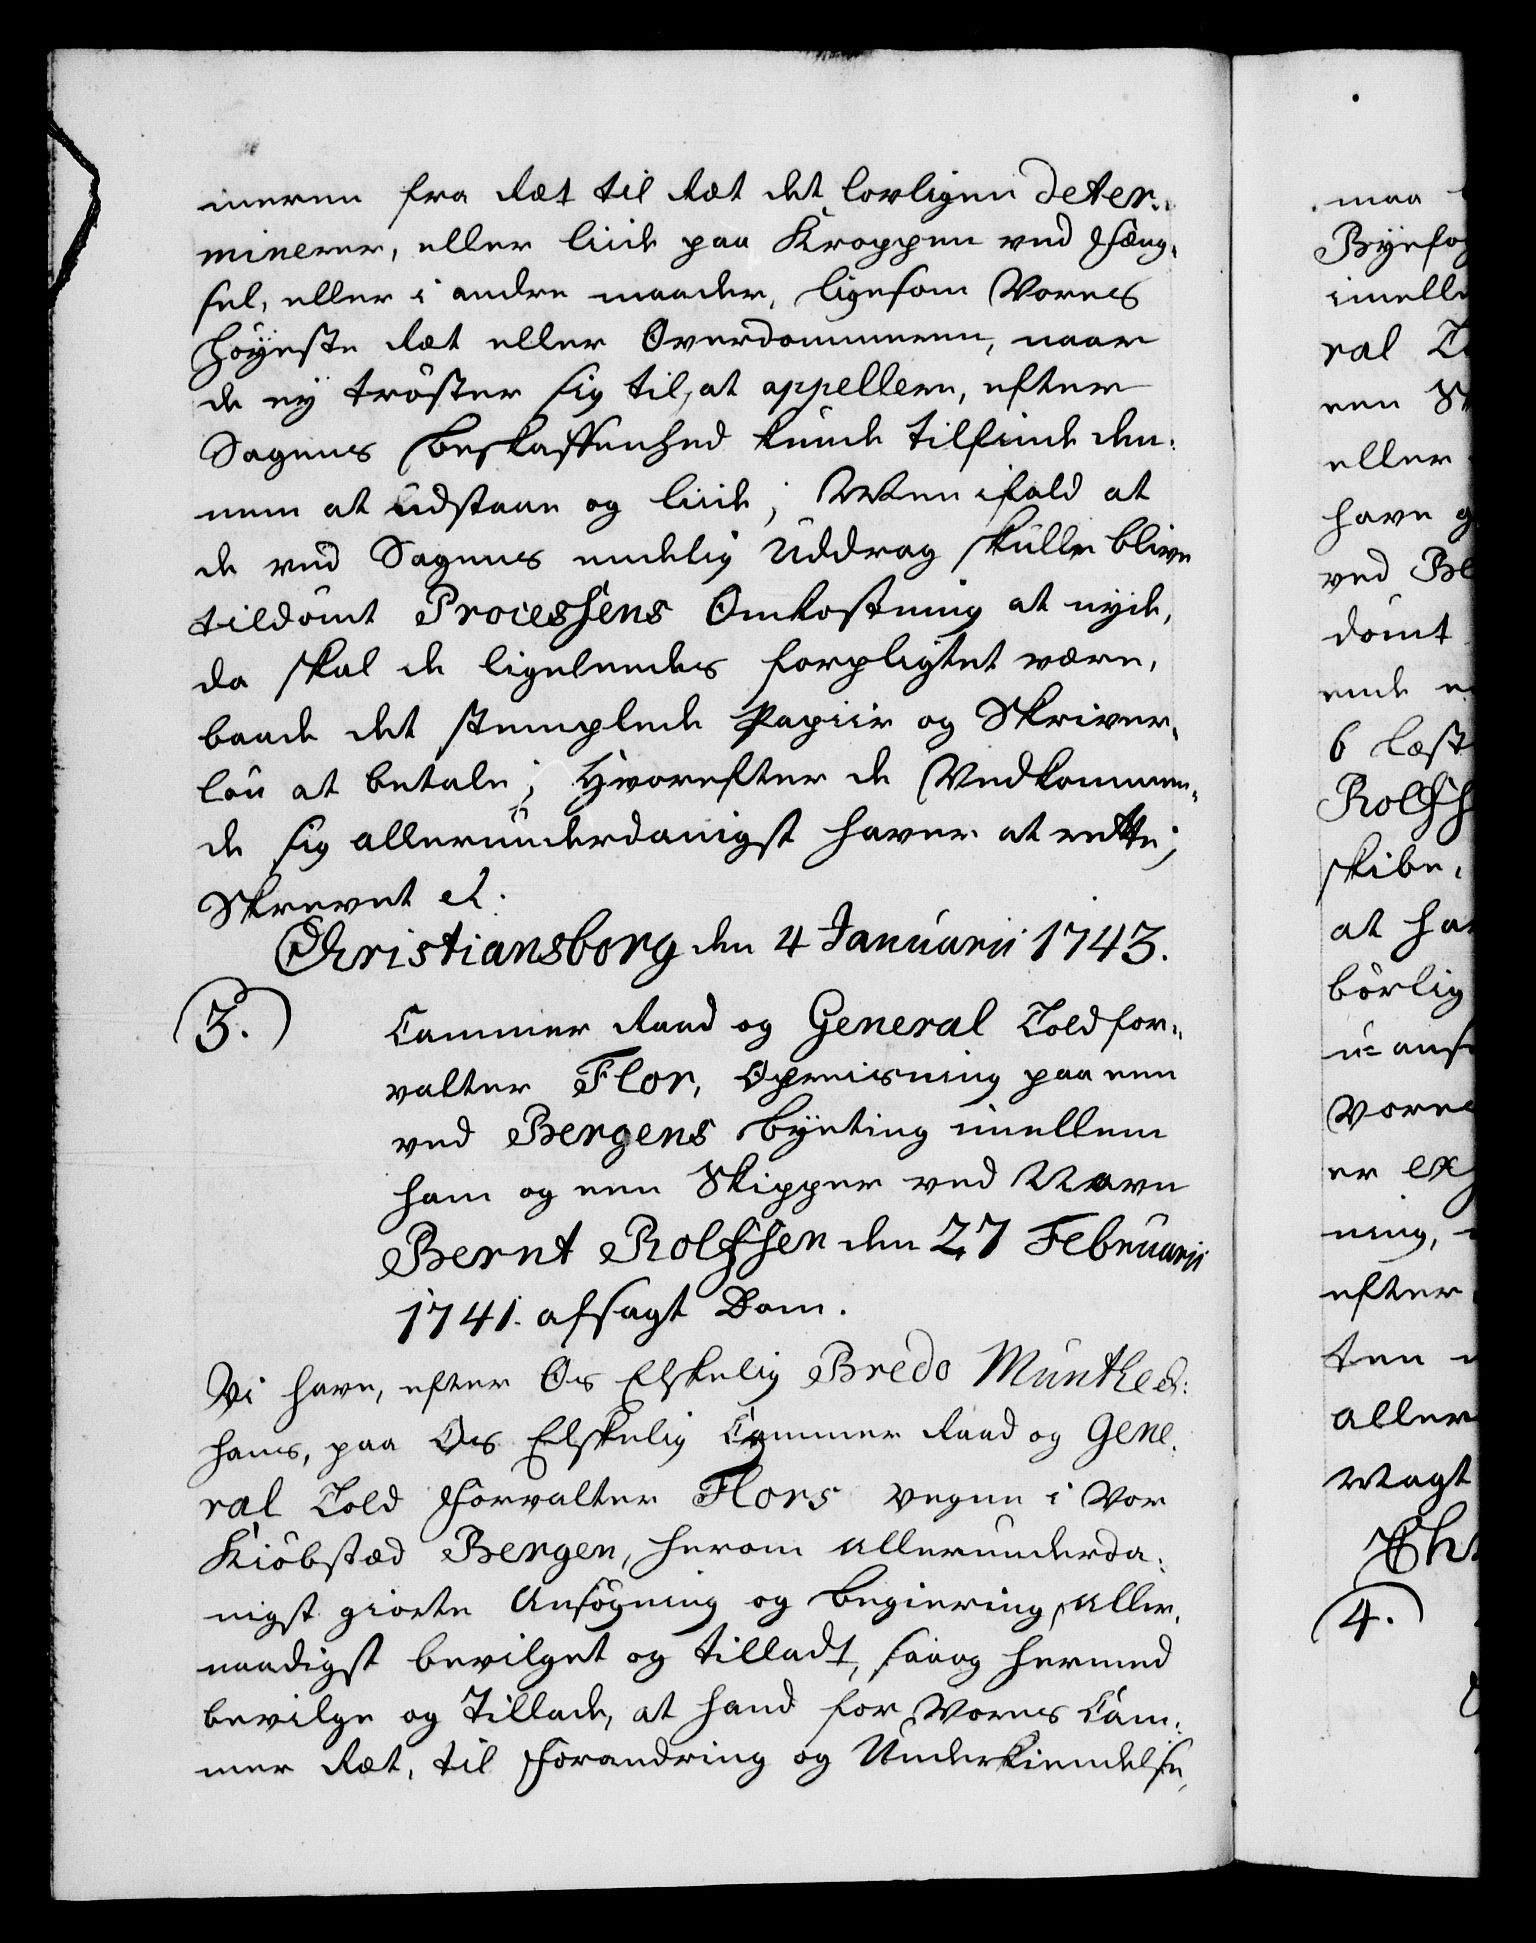 meren fra Ræt til Ræt det lovligen deter-
minerer, eller liide paa Kroppen ved Fæng-
sel, eller i andre maader, ligesom Vores
Høyeste Ræt eller Overdommeren, naar
de ey trøster sig til, at appellere, efter
Sagens beskaffenhed kunde tilfinde den-
nem at udstaae og liide; Men ifald at
de ved Sagens endelig Uddrag skulle blive
tildømt Processens Omkostning at nyde,
da skal de ligeledes forpligtet være,
baade det stemplede Papiir og Skriver-
løn at betale; Hvorefter de Vedkommen-
de sig allerunderdanigst haver at rette;
Skrevet etc.
Christiansborg den 4 Januarii 1743.
3. Cammer Raad og General Toldfor-
valter Flor, Opreisning paa een
ved Bergens byeting imellem
ham og een Skipper ved Navn
Bernt Rolfsen den 27 Februarii
1741. afsagt Dom.
Vi have, efter Os Elskelig Bredo Munthes
hans, paa Os Elskelig Cammer Raad og Gene-
ral Told Forvalter Flors vegne i Vor
Kiøbstæd Bergen, herom allerunderda-
nigst giorte Ansøgning og begiering, aller-
naadigst bevilget og tilladt, saa og hermed
bevilge og Tillade, at hand for Vores Cam-
mer Ræt, til Forandring og Underkiendelse,
maa
Byefog
imelle
ral To
een Sk
eller
have g
ved Be
dømt
ende
6 Læst
Rolfs
skibe,
at ha
børlig
u-ans
Vores
er ex
ning,
efter
ten
aller
Magt
Chr
4.